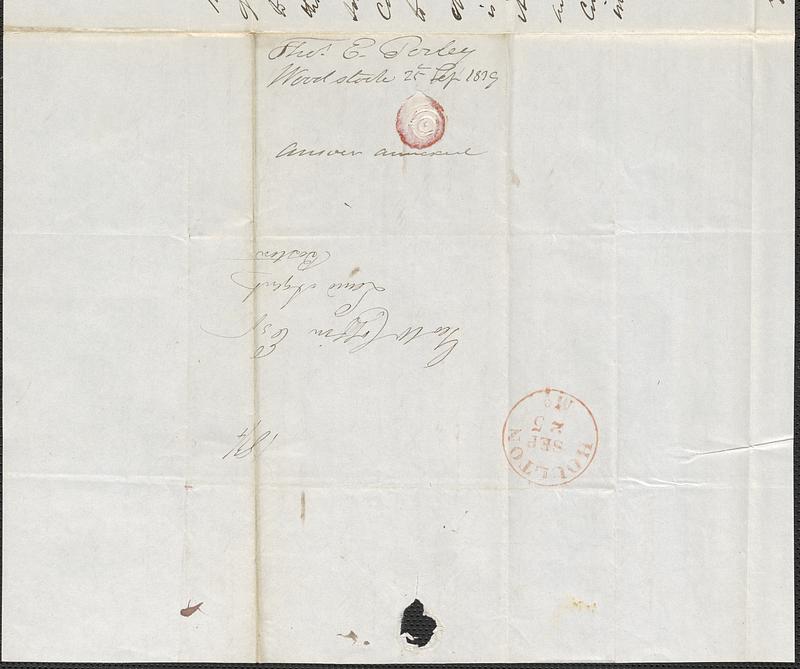 Thos. E. Perley
Woodstock 25 Sep 1839
Answer annexed
Geo W Coffin Esqr
Land Agent
Boston
18¾
HOULTON
SEP
25
Me